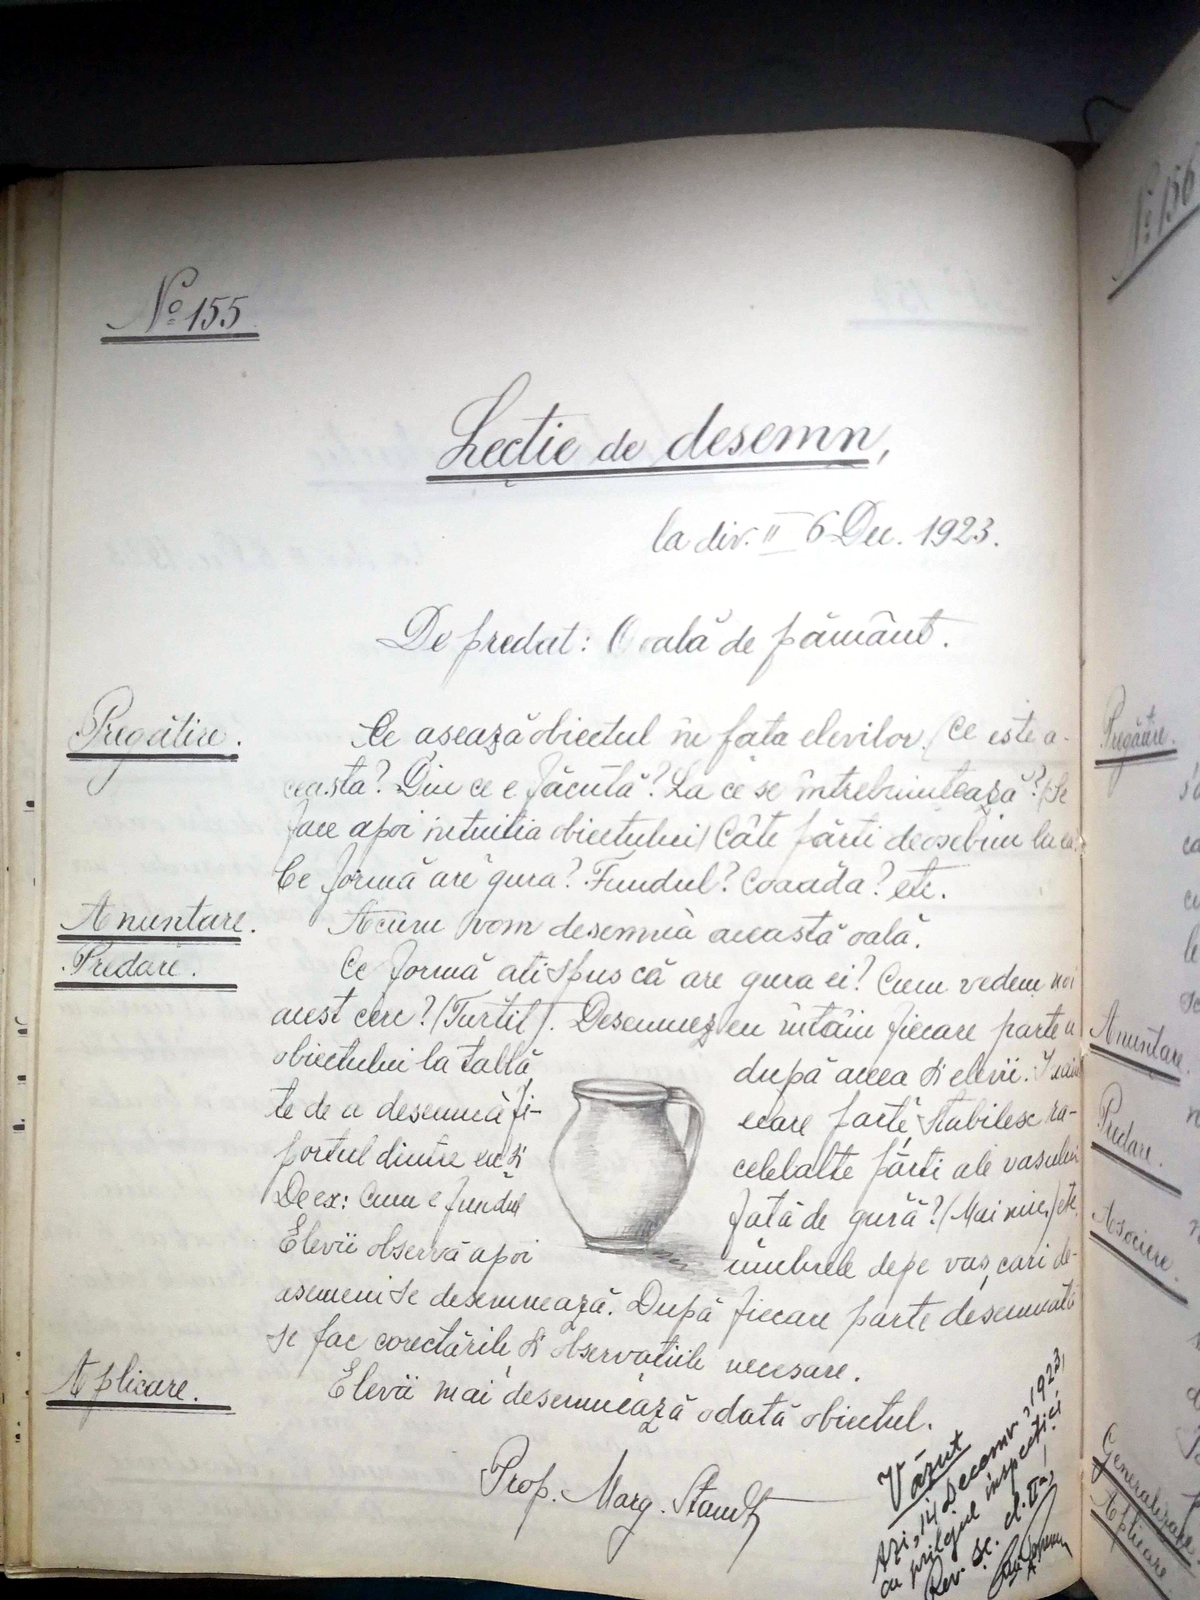 No 155
Lecție de desemn,
la div. II 6 Dec. 1923.
De predat: O oală de pământ.
Pregătire. Se așează obiectul în fața elevilor. (Ce este a-
ceasta? Din ce e făcută? La ce se întrebuințează?) Se
face apoi intuiția obiectului) Câte părți deosebim la ea?
Ce formă are gura? Fundul? Coada? etc.
Anunțare. Acum vom desemnà această oală.
Predare. Ce formă ați spus că are gura ei? Cum vedem noi
acest cerc? (Turtit). Desemnez eu întâiu fiecare parte a
obiectului la tablă după aceea și elevii. Înain
te de a desemnà fi- ecare parte, stabilesc ra-
portul dintre ea și celelalte părți ale vasului
De ex: Cum e fundul față de gură? (Mai mic,) etc.
Elevii observă apoi umbrele depe vas, cari de-
asemeni se desemnează. După fiecare parte desemnată
se fac corectările și observațiile necesare.
Aplicare. Elevii mai desemnează odată obiectul.
Prof. Marg. Staudt
Văzut
Azi, 14 Decemv., 1923,
cu prilejul inspecției
Rev. Sc. cl. II-a,
No 156
Pregătire.
Anunțare.
Predare.
Asociere.
Generalizare
Aplicare